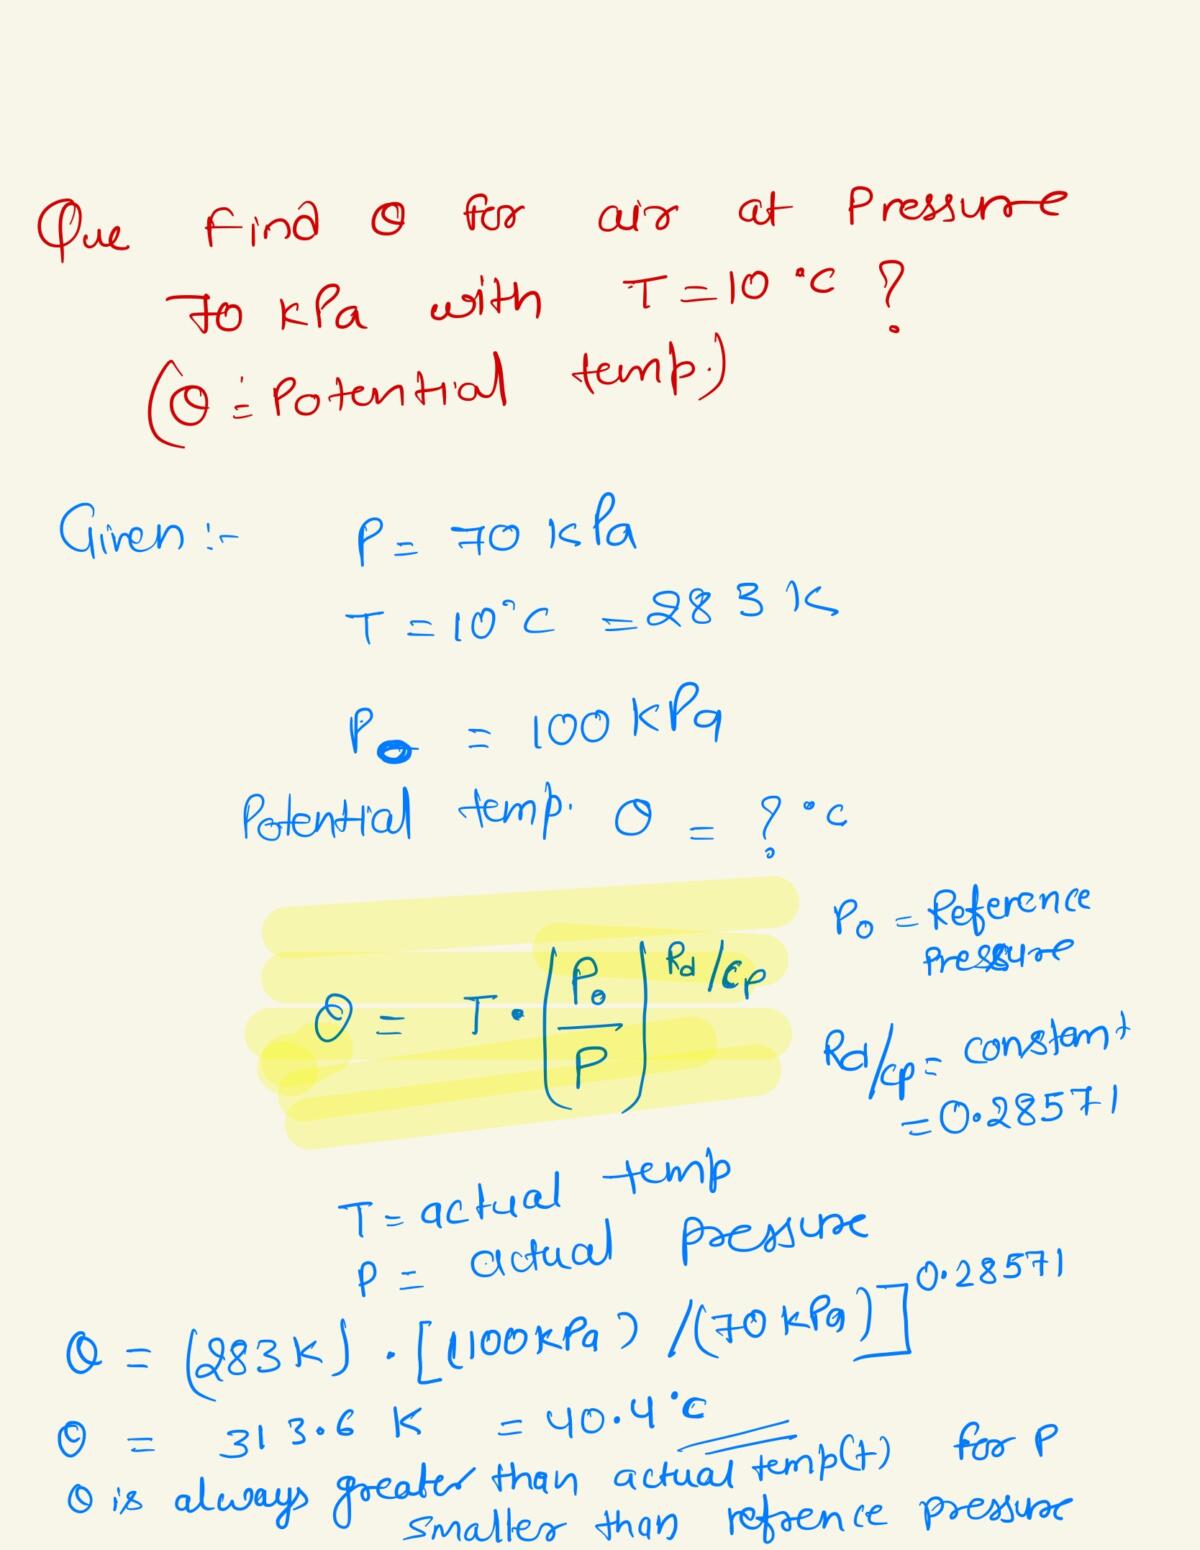 Que Find θ for air at Pressure
70 kPa with T = 10 °C ?
(θ = Potential temp.)
Given :- P = 70 kPa
T = 10°C = 283 K
P₀ = 100 kPa
Potential temp. θ = ? °C
P₀ = Reference
Pressure
θ = T · (P₀ / P)^Rd/Cp
Rd/Cp = constant
= 0.28571
T = actual temp
P = actual pressure
θ = (283 K) · [(100 kPa) / (70 kPa)]^0.28571
θ = 313.6 K = 40.4 °C
θ is always greater than actual temp(t) for P
smaller than refrence pressure